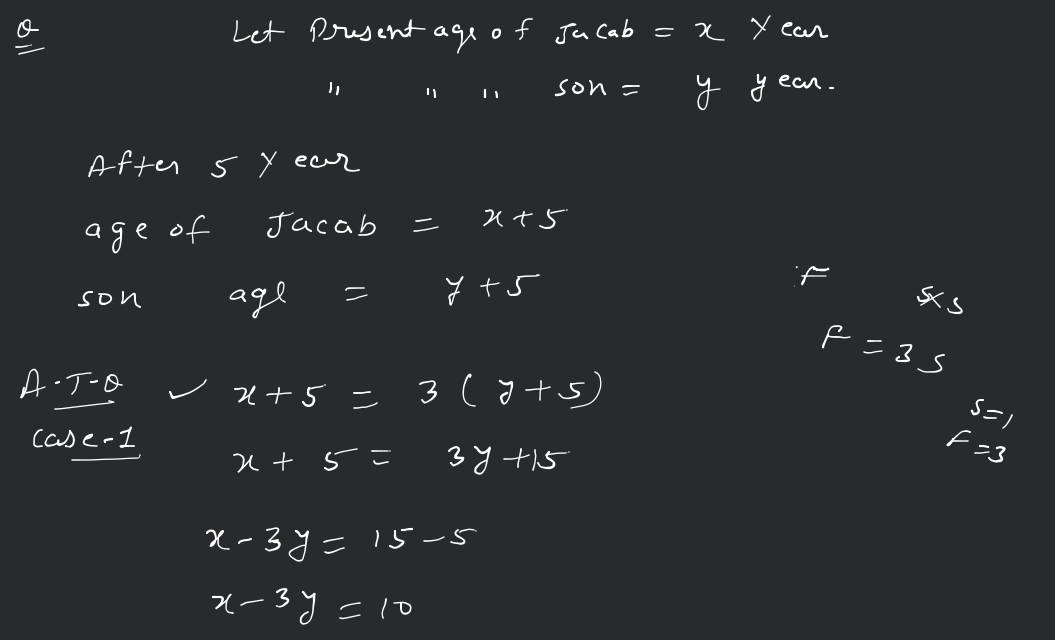 Q Let Present age of Jacab = x Year
" " " son = y year.
After 5 Year
age of Jacab = x+5
son age = y+5
F
5x5
F = 3S
A-T-Q ✓ x+5 = 3(y+5)
S=1
Case-1
F=3
x + 5 = 3y +15
x-3y = 15-5
x-3y = 10